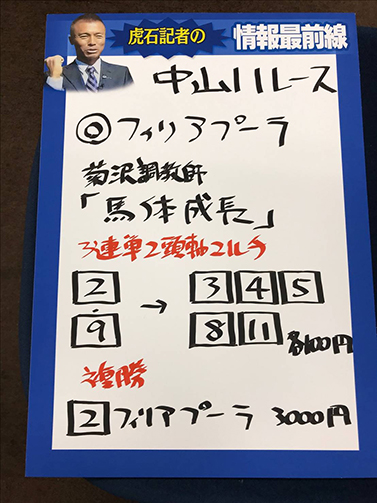 虎石記者の 情報最前線
中山11レース
◎フィリアプーラ
菊沢調教師
「馬体成長」
3連単2頭軸マルチ
2 → 3 4 5
9 8 11 各100円
複勝
2 フィリアプーラ 3000円